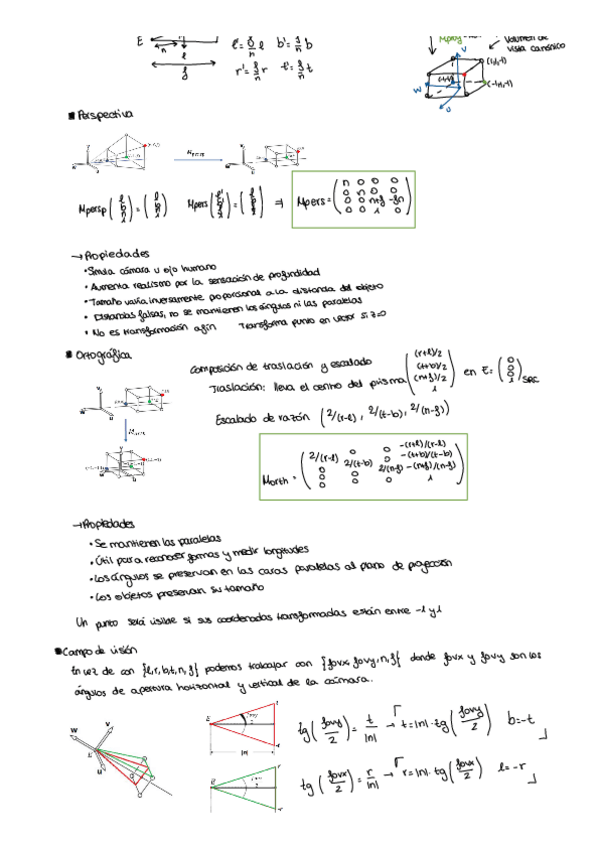 E
n
l
f
l' = f/n l   b' = f/n b
r' = f/n r   t' = f/n t
Volumen de
vista canónico
(1,1,-1)
(-1,-1,-1)
V
W
U
Perspectiva
Mpersp (l b n 1) = (l b n 1)   Mpers (l' b' f 1) = (l b f 1) ⇒ Mpers = (n 0 0 0
0 n 0 0
0 0 n+f -fn
0 0 1 0)
→ Propiedades
• Simula cámara u ojo humano
• Aumenta realismo por la sensación de profundidad
• Tamaño varía inversamente proporcional a la distancia del objeto
• Distancias falsas, no se mantienen los ángulos ni las paralelas
• No es transformación afín   Transforma punto en vector si z=0
Ortográfica
Composición de traslación y escalado
Traslación: lleva el centro del prisma ((r+l)/2 (t+b)/2 (n+f)/2 1) en E = (0 0 0 1) SRC
Escalado de razón (2/(r-l), 2/(t-b), 2/(n-f))
Morth = (2/(r-l) 0 0 -(r+l)/(r-l)
0 2/(t-b) 0 -(t+b)/(t-b)
0 0 2/(n-f) -(n+f)/(n-f)
0 0 0 1)
→ Propiedades
• Se mantienen las paralelas
• Útil para reconocer formas y medir longitudes
• Los ángulos se preservan en las caras paralelas al plano de proyección
• Los objetos preservan su tamaño
Un punto será visible si sus coordenadas transformadas están entre -1 y 1
Campo de visión
En vez de con {l,r,b,t,n,f} podemos trabajar con {fovx,fovy,n,f} donde fovx y fovy son los
ángulos de apertura horizontal y vertical de la cámara.
W
V
E
U
E
|n|
tg(fovy/2) = t/|n| → t=|n|·tg(fovy/2)   b=-t
tg(fovx/2) = r/|n| → r=|n|·tg(fovx/2)   l=-r